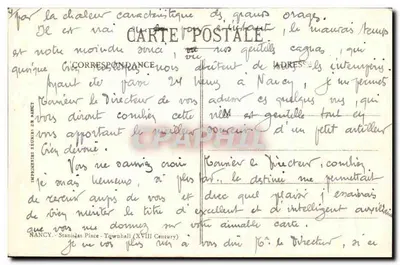 par la chaleur caractéristique des grands orages.
Il est vrai
le mauvais temps
CARTE POSTALE
est notre moindre souci,
nos gentilles cagnas, qui
CORRESPONDANCE
ADRESSE
quoique bien
nous abritent
Ayant été passer 24 heures à Nancy, je me permets
Monsieur le Directeur de vous adresser ces quelques vues, qui
vous diront combien cette ville est gentille tout en
vous apportant le meilleur souvenir d'un petit artilleur
bien dévoué.
Vous ne sauriez croire Monsieur le Directeur, combien
je serais heureux, si plus tard la destinée me permettait
de revenir auprès de vous et avec quel plaisir j'essaierais
de bien mériter le titre d'excellent et d'intelligent auxiliaire
que vous me donnez sur votre aimable carte.
NANCY. - Stanislas Place - Townhall (XVIII Century)
Je ne vois plus rien à vous dire Mr. le Directeur, si ce
IMPRIMERIES RÉUNIES DE NANCY
CPAPHIL.COM